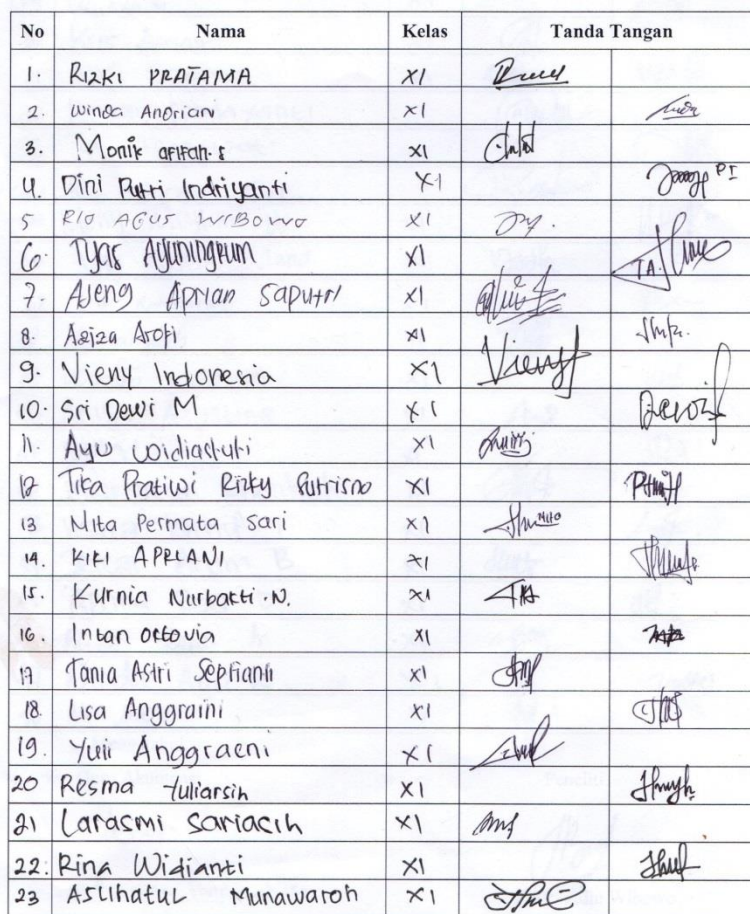 No Nama Kelas Tanda Tangan
1. RIZKI PRATAMA XI
2. Winda Andriani XI
3. Monik afifah.s XI
4. Dini Putri Indriyanti XI PI
5 RIO AGUS WIBOWO XI
6. Tyas Ayuningrum XI TA.
7. Ajeng Aprian Saputri XI
8. Aziza Arofi XI
9. Vieny Indonesia XI Vieny
10. Sri Dewi M XI Dewi
11. Ayu Widiastuti XI
12 Tika Pratiwi Rizky Sutrisno XI
13 Mita Permata Sari XI MITA
14. KIKI APRIANI XI
15. Kurnia Nurbakti.N. XI
16. Intan Oktovia XI
17 Tania Astri Septianti XI
18. Lisa Anggraini XI
19. Yuni Anggraeni XI
20 Resma Yuliarsih XI
21 Larasmi Sariasih XI
22. Rina Widianti XI
23 Aslihatul Munawaroh XI